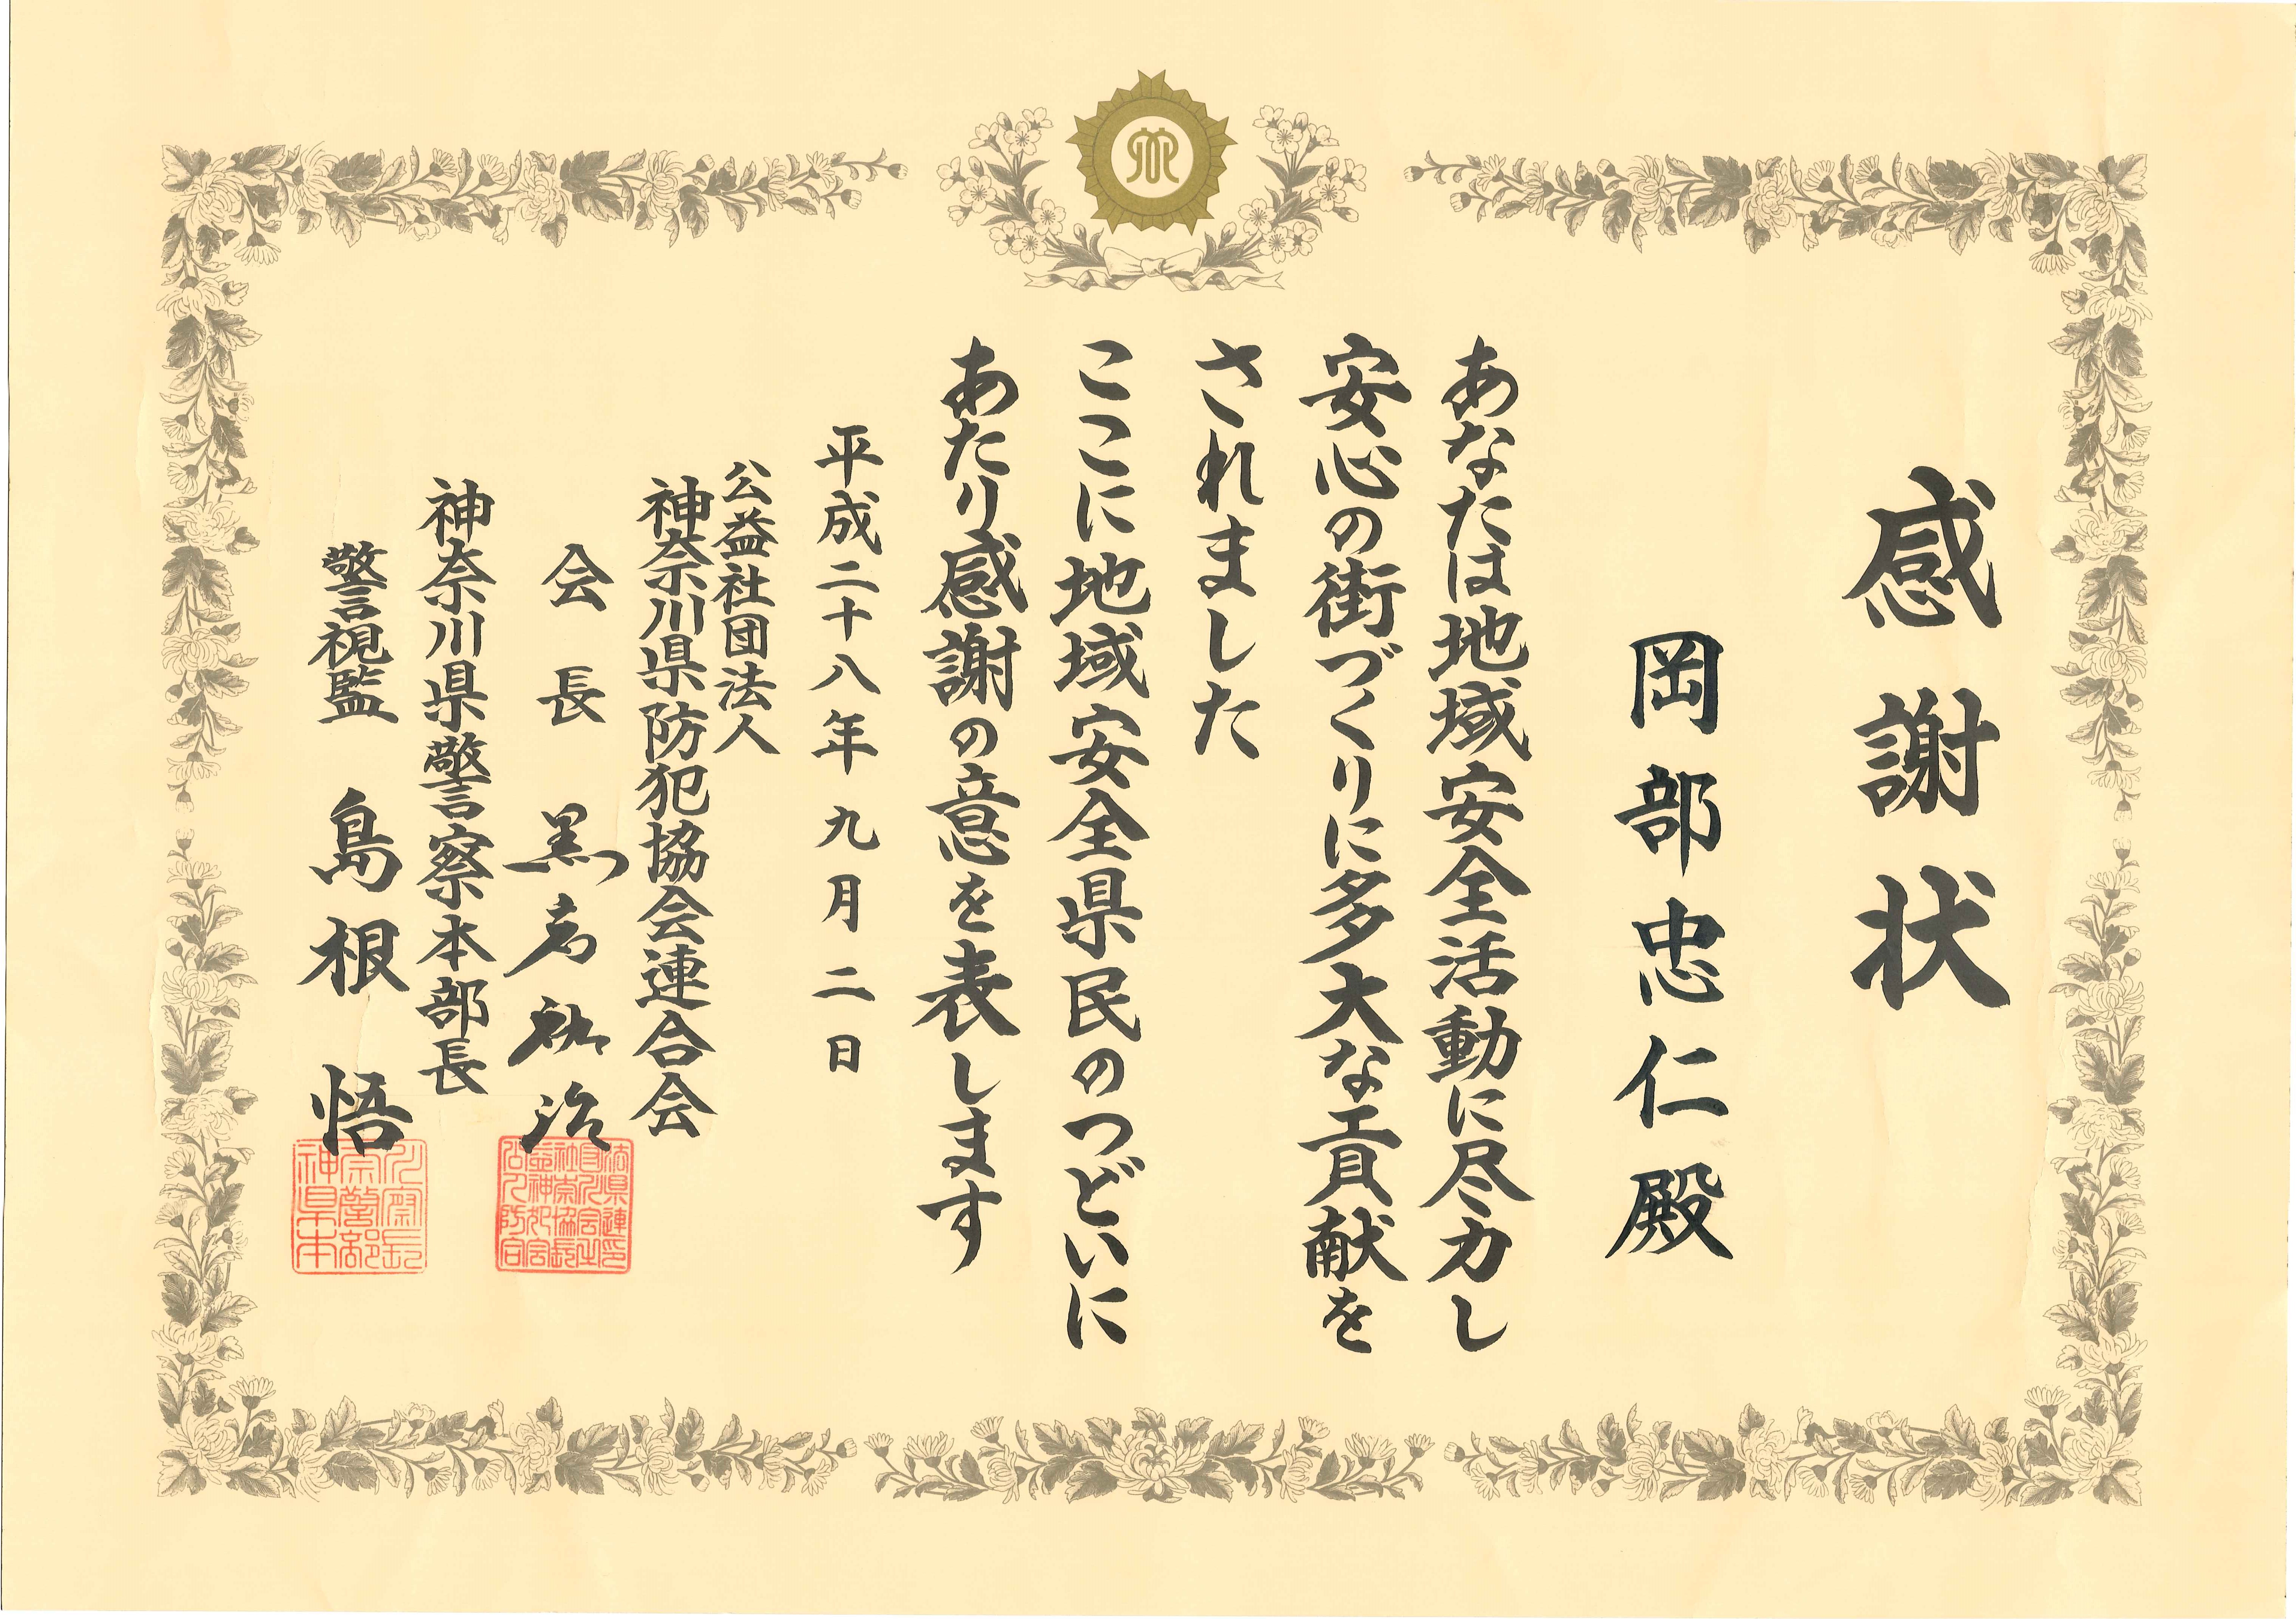 感謝状
岡部忠仁殿
あなたは地域安全活動に尽力し
安心の街づくりに多大な貢献を
されました
ここに地域安全県民のつどいに
あたり感謝の意を表します
平成二十八年九月二日
公益社団法人
神奈川県防犯協会連合会
会長 黒岩祐治
神奈川県警察本部長
警視監 島根悟
神奈川
県警察
本部長